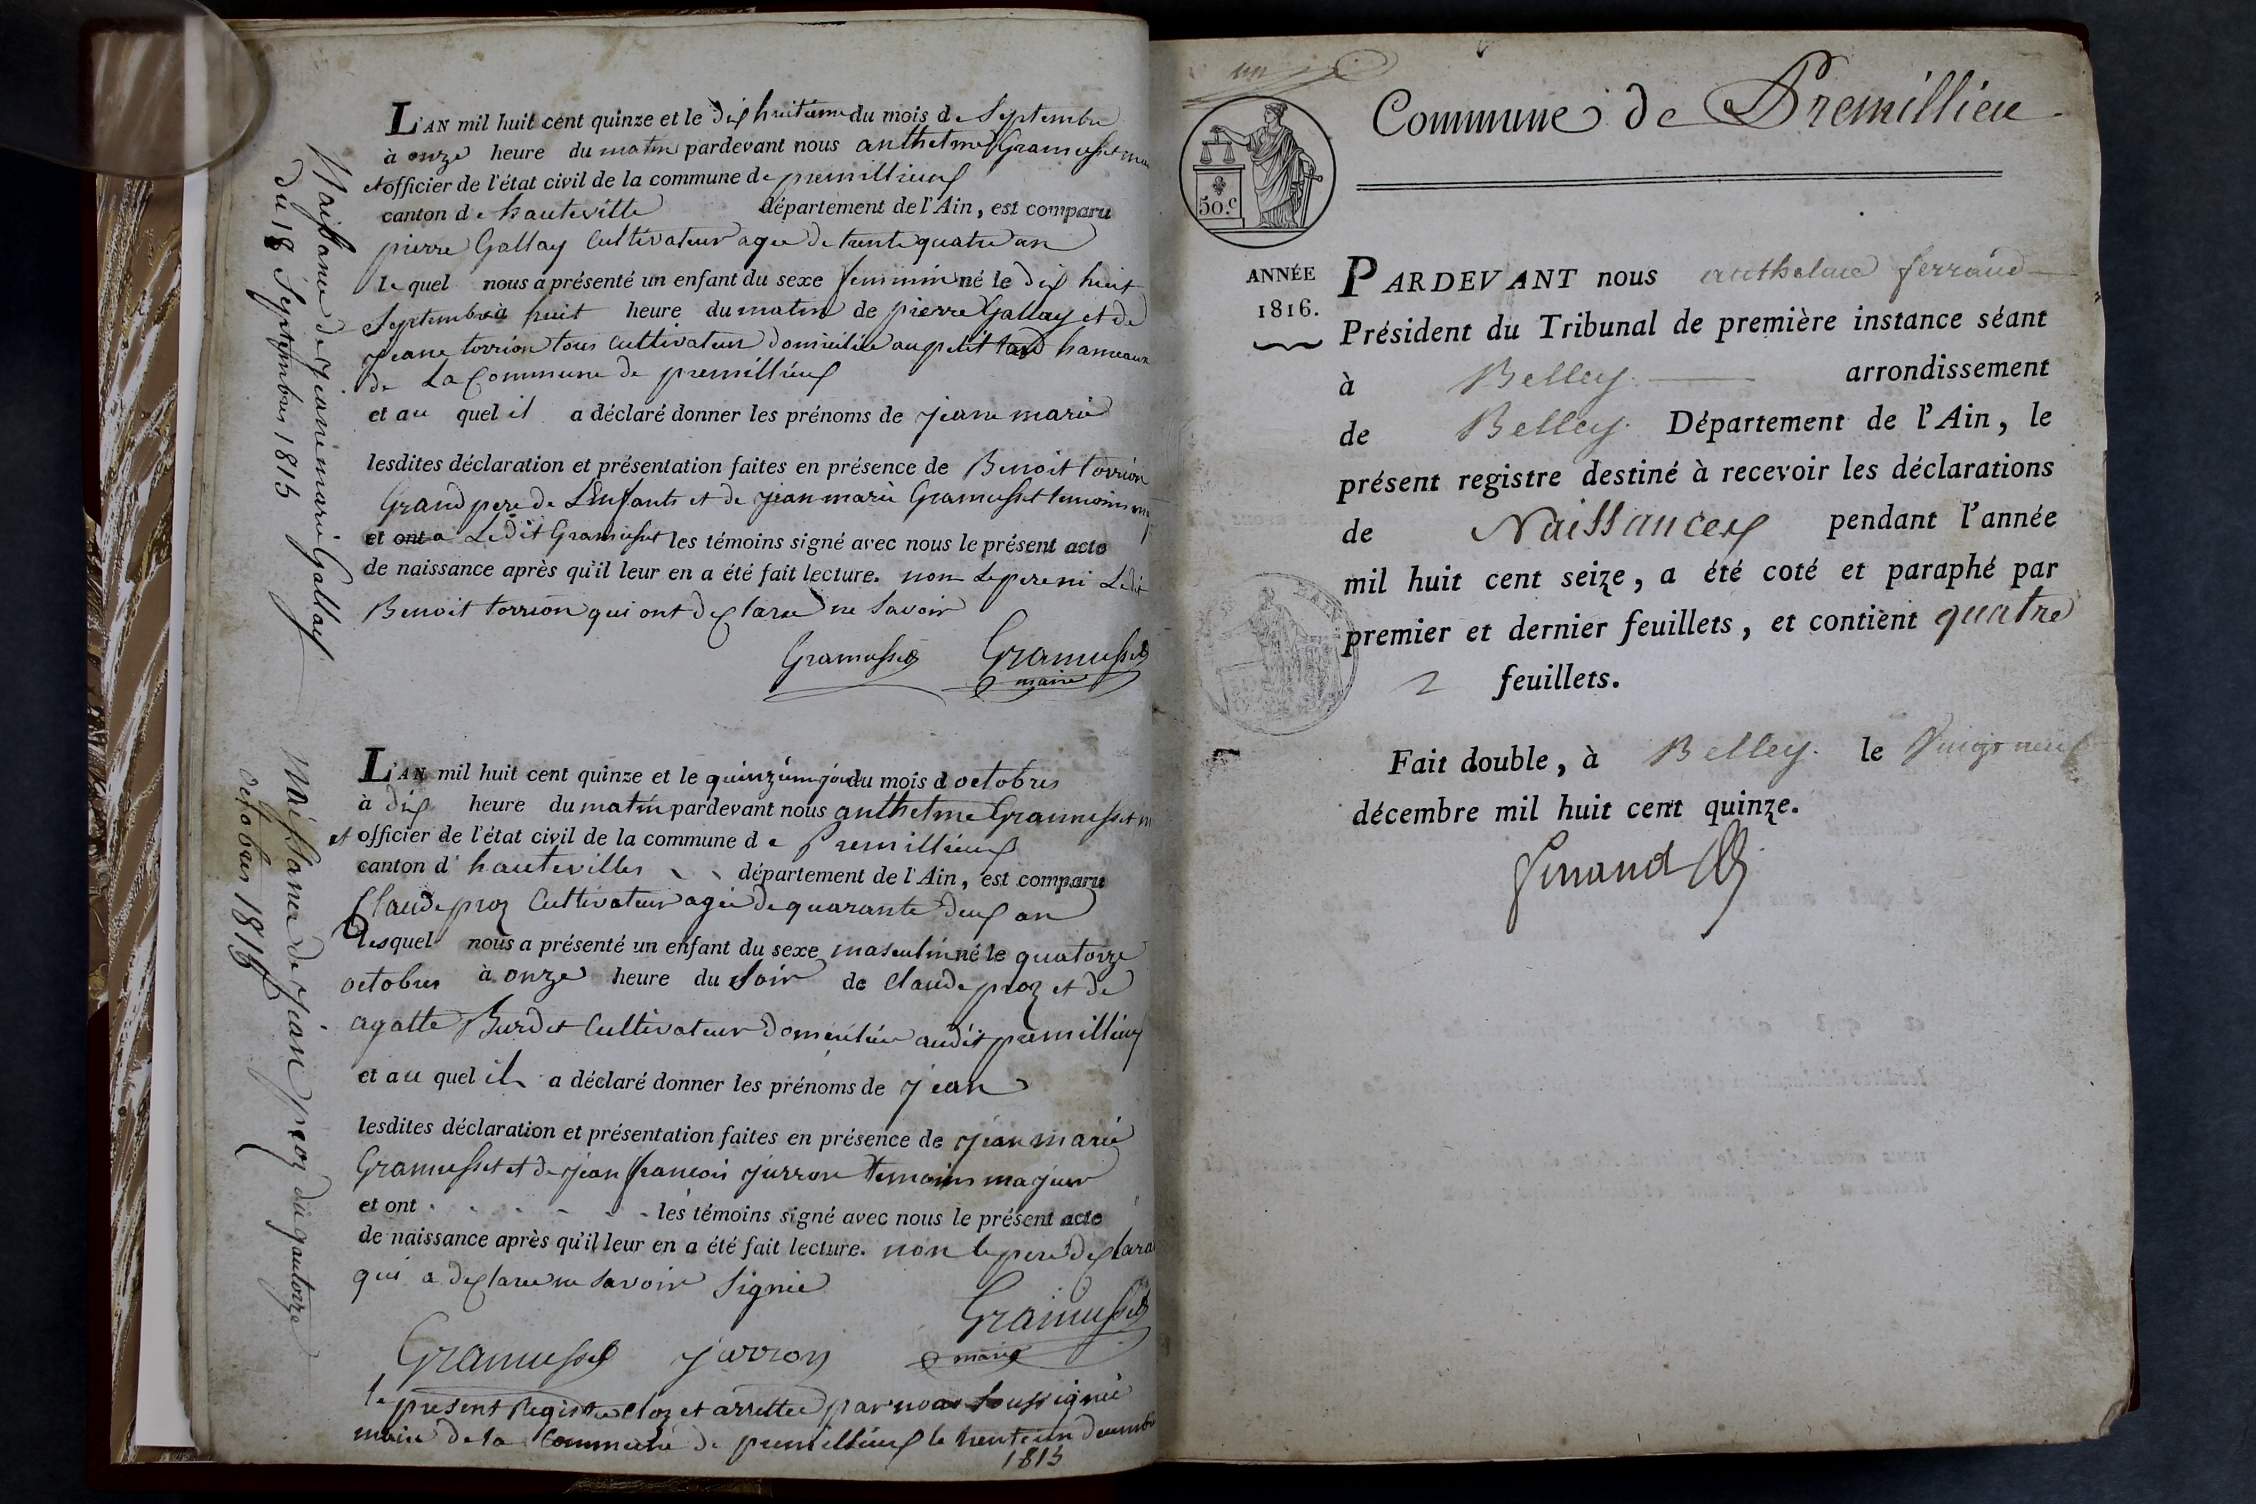 Naissance de jeanne marie Gallay
du 18 Septembres 1815
L'AN mil huit cent quinze et le dix huitieme du mois de Septembre
à onze heure du matin pardevant nous anthelme Gramusset
et officier de l'état civil de la commune de premillieux
canton de hauteville département de l'Ain, est comparu
pierre Gallay Cultivateur agee de trente quatre an
le quel nous a présenté un enfant du sexe feminin né le dix huit
Septembre à huit heure du matin de pierre Gallay et de
jeane torrion tous cultivateur domicilie au petit hameaux
de La Commune de premillieux
et au quel il a déclaré donner les prénoms de jeane marie
lesdites déclaration et présentation faites en présence de Benoit torrion
Grand pere de L'Enfants et de jean marie Gramusset temoins
et ont a Le dit Gramusset les témoins signé avec nous le présent acte
de naissance après qu'il leur en a été fait lecture. non Le pere ni Le dit
Benoit torrion qui ont declaree ne Savoir
Gramusset Gramusset
maire
Naissance de jean proz du quatorze
octobres 1815
L'AN mil huit cent quinze et le quinzieme jour du mois d octobres
à dix heure du matin pardevant nous anthelme Gramusset
et officier de l'état civil de la commune de Premillieux
canton d' hautevilles département de l'Ain, est comparu
Claude proz Cultivateur agee de quarante deux an
lesquel nous a présenté un enfant du sexe masculin né le quatorze
octobres à onze heure du Soir de Claude proz et de
agatte Burdet Cultivateur domicilie audit premillieux
et au quel il a déclaré donner les prénoms de jean
lesdites déclaration et présentation faites en présence de jean marie
Gramusset et de jean francois jurron temoins majeur
et ont les témoins signé avec nous le présent acte
de naissance après qu'il leur en a été fait lecture. non le pere
qui a declaree ne Savoir Signie
Gramusset jurron Gramusset
maire
le present Registre Cloz et arrettee par nous Soussignie
maire de la Commune de premillieux le trente un decembre
1815
Commune de Premillieu
50.c
ANNÉE
1816.
PARDEVANT nous anthelme ferrand
Président du Tribunal de première instance séant
à Belley. arrondissement
de Belley. Département de l'Ain, le
présent registre destiné à recevoir les déclarations
de Naissances pendant l'année
mil huit cent seize, a été coté et paraphé par
premier et dernier feuillets, et contient quatre
feuillets.
Fait double, à Belley. le vingt neuf
décembre mil huit cent quinze.